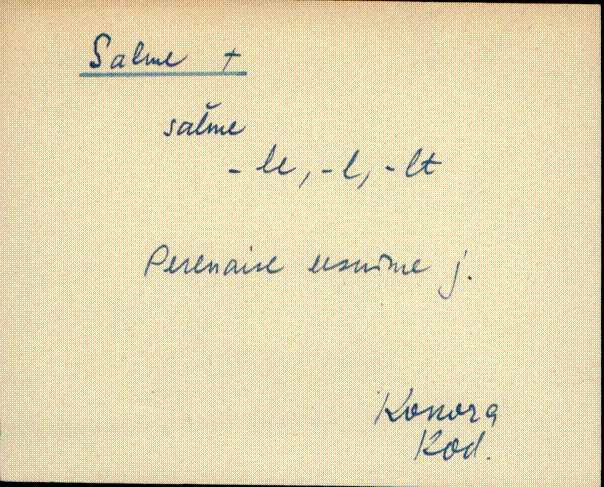 Salme +
salme
- le, - l, - lt
Perenaise eesnime j.
Konora
Kod.